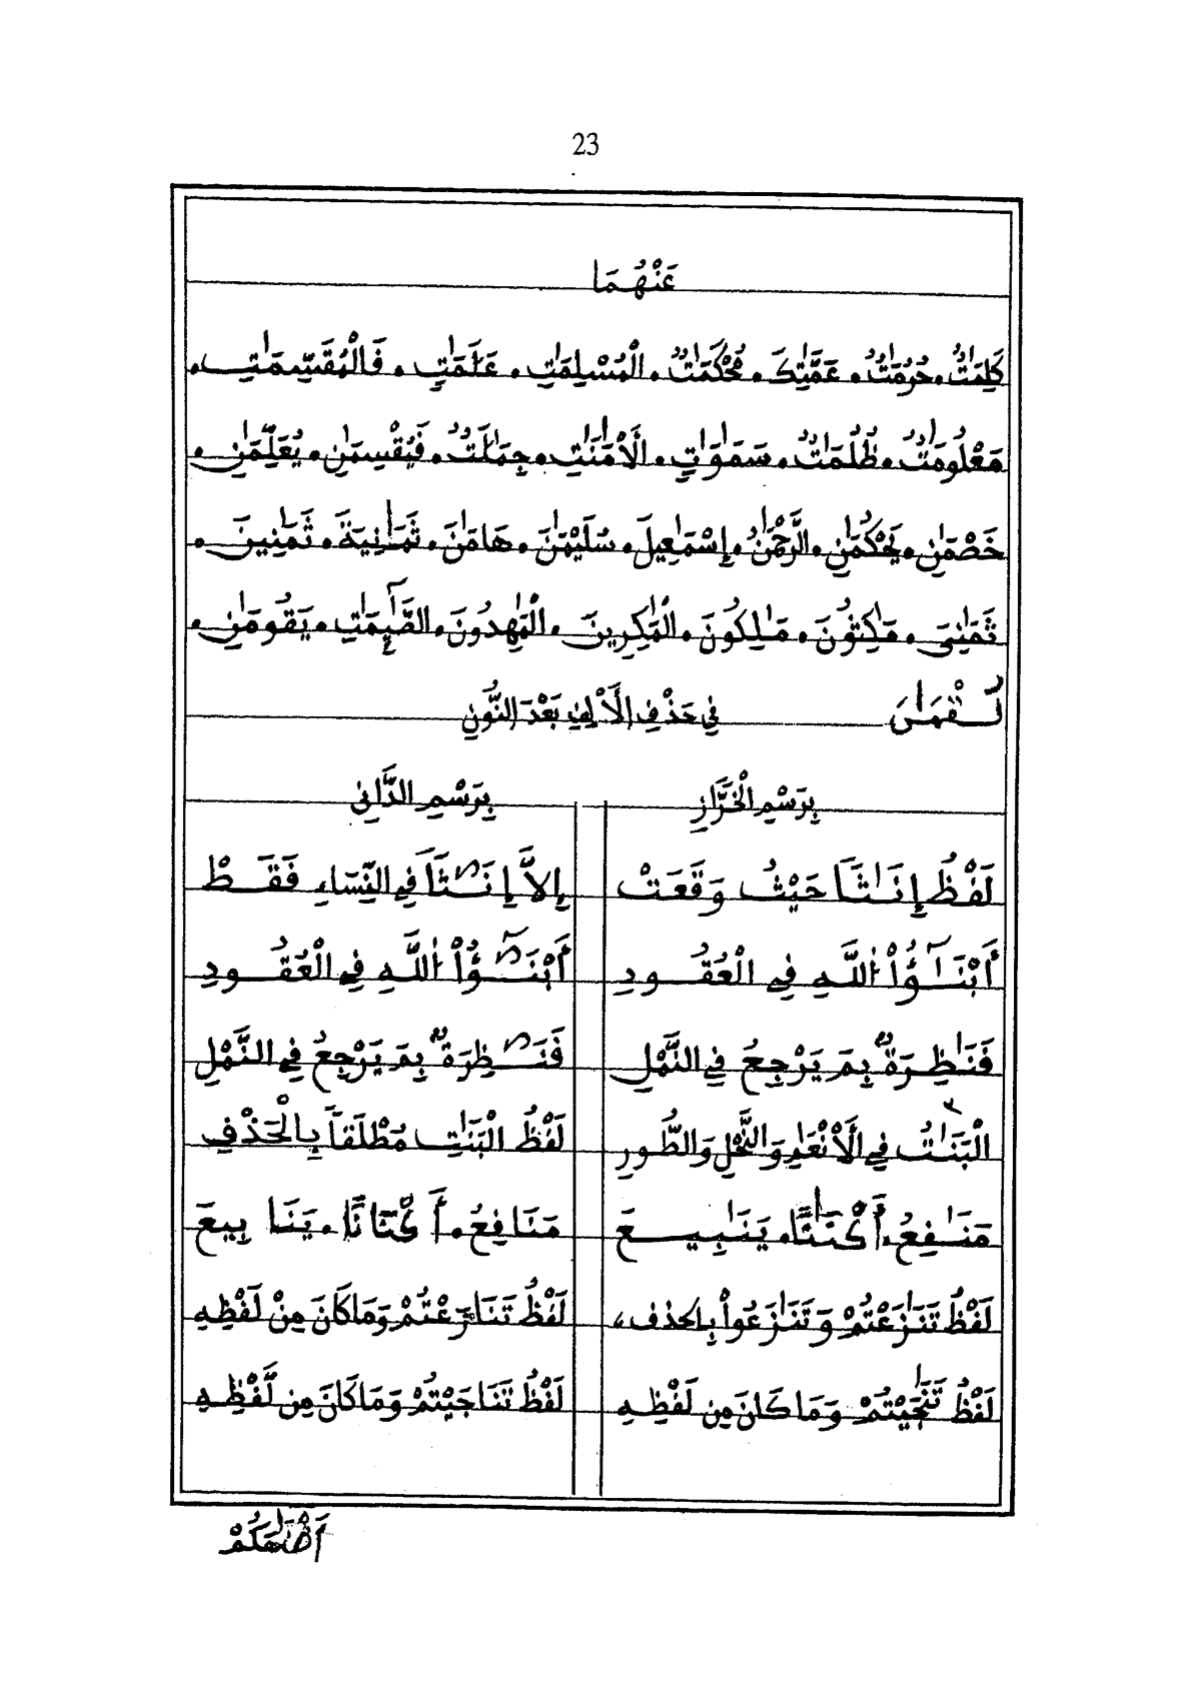 23
عَنْهُمَا
كَلِمَٰتٌ. حُرُمَٰتٌ. عَمَّٰتِكَ. مُّحْكَمَٰتٌ. الْمُسْلِمَٰتِ. عَلَٰمَٰتٍ. فَالْمُقَسِّمَٰتِ.
مَعْلُومَٰتٌ. ظُلُمَٰتٌ. سَمَٰوَٰتٍ. الَامَٰنَٰتِ. جِمَٰلَٰتٌ. فَيُقْسِمَٰنِ. يُعَلِّمَٰنِ.
خَصْمَٰنِ. يَحْكُمَٰنِ. الرَّحْمَٰنُ. إِسْمَٰعِيلَ. سُلَيْمَٰنَ. هَامَٰنَ. ثَمَٰنِيَةَ. ثَمَٰنِينَ.
ثَمَٰنِىَ. مَٰكِثُونَ. مَٰلِكُونَ. الْمَٰكِرِينَ. الْمَٰهِدُونَ. الصَّٰٓئِمَٰتِ. يَقُومَٰنِ.
لُقْمَٰنَ فِي حَذْفِ الَالِفِ بَعْدَ النُّونِ
بِرَسْمِ الْخَرَّازِ بِرَسْمِ الدَّانِى
لَفْظُ إِنَٰثاً حَيْثُ وَقَعَتْ إِلاَّ إِنَٰثاً فِي النِّسَاءِ فَقَطْ
أَبْنَٰٓؤُاْ اللَّهِ فِي الْعُقُودِ أَبْنَٰٓؤُاْ اللَّهِ فِي الْعُقُودِ
فَنَٰظِرَةٌ بِمَ يَرْجِعُ فِي النَّمْلِ فَنَٰظِرَةٌ بِمَ يَرْجِعُ فِي النَّمْلِ
الْبَنَٰتُ فِي الَانْعَٰمِ وَالنَّحْلِ وَالطُّورِ لَفْظُ الْبَنَٰتِ مُطْلَقاً بِالْحَذْفِ
مَنَٰفِعُ. أَكْنَٰنًا. يَنَٰبِيعَ مَنَافِعُ. أَكْنَانًا. يَنَابِيعَ
لَفْظُ تَنَٰزَعْتُمْ وَتَنَٰزَعُواْ بِالحذف، لَفْظُ تَنَازَعْتُمْ وَمَا كَانَ مِنْ لَفْظِهِ
لَفْظُ تَنَٰجَيْتُمْ وَمَا كَانَ مِن لَفْظِهِ لَفْظُ تَنَاجَيْتُمْ وَمَا كَانَ مِن لَّفْظِهِ